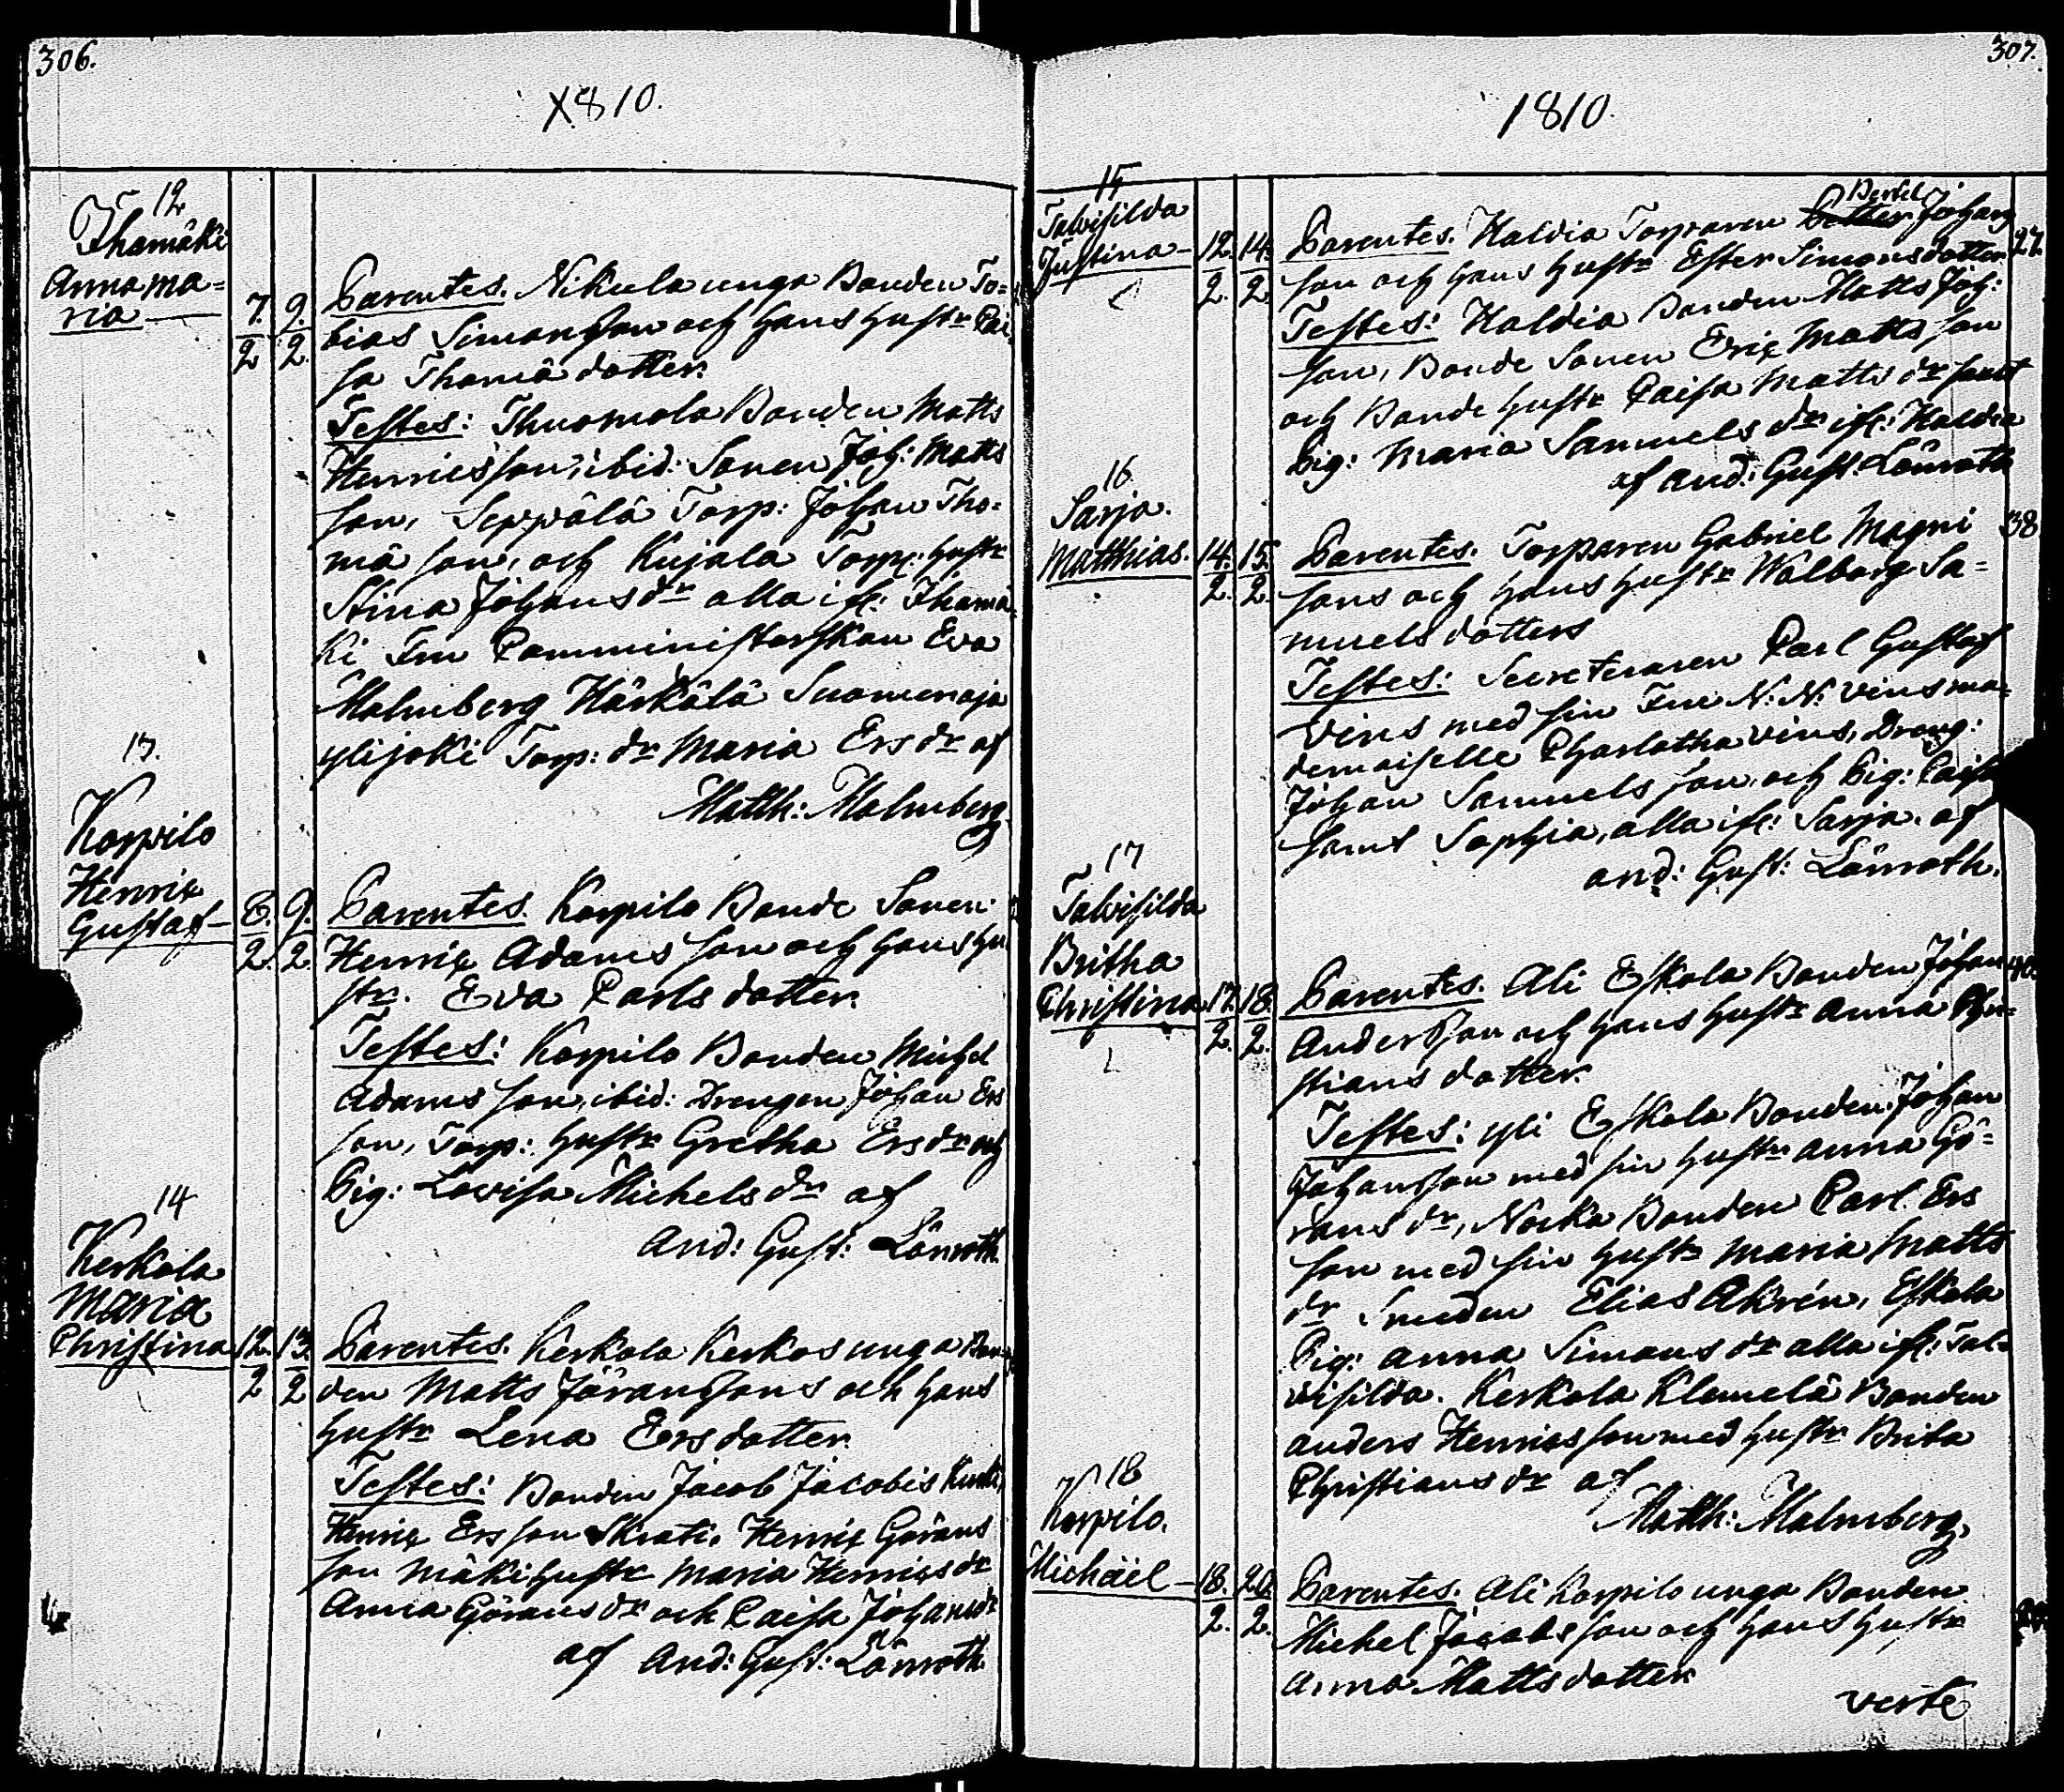 306.
1810.
12
Ihamäki
Anna Ma=
ria
7. 9.
2 2.
Parentes. Nikula unga Bonden To=
bias Simonsson och hans hustr Cai
sa Thomä dotter.
Testes: Thuomola Bonden Matts
Henricsson, ibid: Sonen Joh: Matts
son, Seppälä Torp: Johan Tho=
mä son, och Kujala Torp: hustr
Stina Johans dr alla ifr: Ihamä
ki Fru Comministerskan Eva
Malmberg Härkälä Suomenoja
ylijoki Torp: dr Maria Ers dr af
Matth: Malmberg
13.
Korpilo
Henric
Gustaf
8. 9.
2. 2.
Parentes. Korpilo Bonde Sonen
Henric Adams son och hans hu
str. Eva Carls dotter.
Testes: Korpilo Bonden Michel
Adams son, ibid: Drengen Johan Ers
son, Torp: hustr Gretha Ers dr och
Pig: Lovisa Michels dr af
And: Gust: Lönroth
14
Kerkola
Maria
Christina
12. 13.
2 2
Parentes. Kerkola Kerkos unga Bon
den Matts Jöranssons och hans
hustr Lena Ersdotter.
Testes: Bonden Jacob Jacobis
Henric Ersson Skrati. Henric Görans
son Mäki hustr Maria Henrics dr
Anna Görans dr och Caisa Johansdr
af And: Gust: Lönroth
307.
1810.
15
Talvisilda
Justina
12. 14.
2. 2
Parentes. Haldia Torparen Bertel Johans
son och hans hustr Ester Simonsdotter
27.
Testes: Haldia Bonden Matts Joh:
son, Bonde Sonen Eric Matts son
och Bonde hustr Caisa Matts dr samt
Pig: Maria Samuels dr ifr: Haldia
af And: Gust: Lönroth
16
Sarja.
Matthias.
14. 15.
2. 2.
Parentes. Torparen Gabriel Magni
38
sons och hans hustr Wålborg Sa=
muels dotters
Testes: Secreteraren Carl Gustaf
Vins med sin Fru N: N: Vins ma=
demoiselle Charlotha Vins, Dreng:
Johan Samuels son, och Pig: Caisa
samt Sophia, alla ifr: Sarja. af
And: Gust: Lönroth.
17
Talvisilda
Britha
Christina
17. 18.
2. 2.
Parentes. Ali Eskola Bonden Johan
40.
Andersson och hans hustr Anna Chri=
stians dotter.
Testes: yli Eskola Bonden Johan
Johansson med sin hustr Anna Gö=
rans dr, Nocka Bonden Carl Ers
son med sin hustr Maria Matts
dr Smeden Elias Akrén, Eskola
Pig: Anna Simons dr alla ifr: Tal=
visilda. Kerkola Klemelä Bonden
Anders Henricsson med hustr Brita
Christians dr af
Matth: Malmberg.
18
Korpilo.
Michäel
18. 20.
2. 2.
Parentes. Ali Korpilo unga Bonden
Michel Jacobs son och hans hustr
Anna Matts dotter
verte